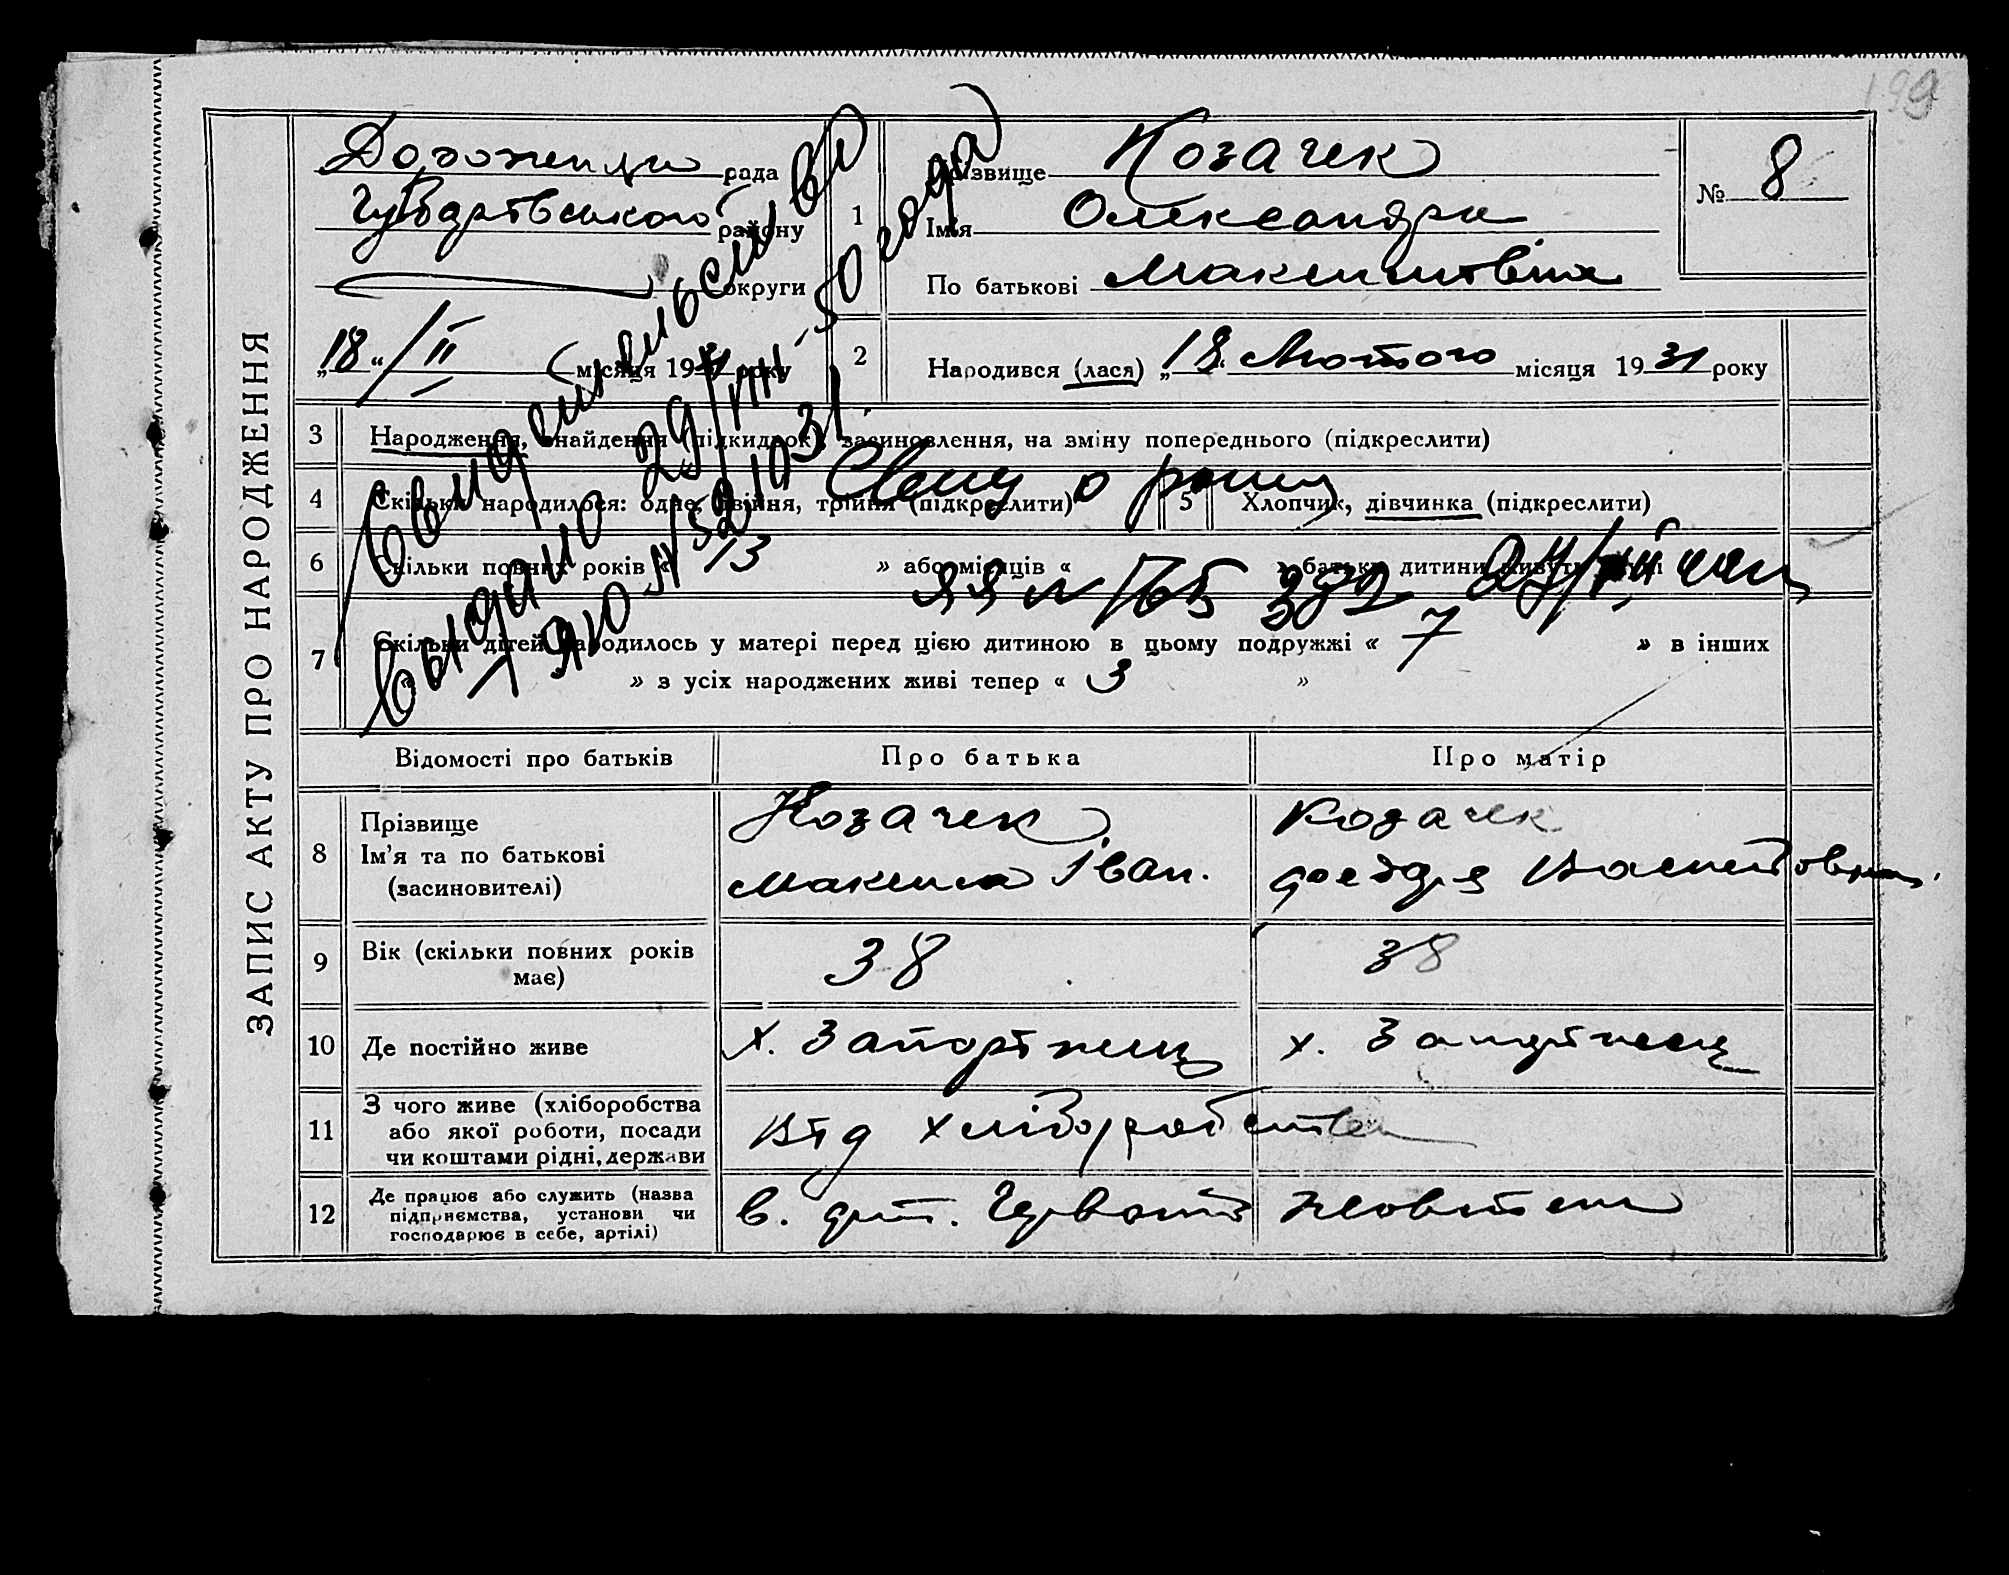 199
ЗАПИС АКТУ ПРО НАРОДЖЕННЯ
рада
району
округи
„18“ / II місяця 1931 року
1 Прізвище Козачек
Ім'я Олександра
По батькові Максимовна
№ 8
2 Народився (лася) „18“ Лютого місяця 1931 року
3 Народження, знайдення (підкидьок), засиновлення, на зміну попереднього (підкреслити)
4 Скільки народилося: одне, двійня, трійня (підкреслити) 5 Хлопчик, дівчинка (підкреслити)
6 Скільки повних років « 13 » або місяців « » батьки дитини живуть
7 Скільки дітей народилось у матері перед цією дитиною в цьому подружжі « 7 » в інших
« » з усіх народжених живі тепер « 3 »
Свид о рожд
ЯЯ №
выдано 29/VIII-50 года
Відомості про батьків Про батька Про матір
8 Прізвище Ім'я та по батькові (засиновителі)
Козачек Максим Іван.
Козачек
9 Вік (скільки повних років має) 38 38
10 Де постійно живе х. х.
11 З чого живе (хліборобства або якої роботи, посади чи коштами рідні, держави
від хліборобства
12 Де працює або служить (назва підприємства, установи чи господарює в себе, артілі)
в. арт. Червоний Жовтень